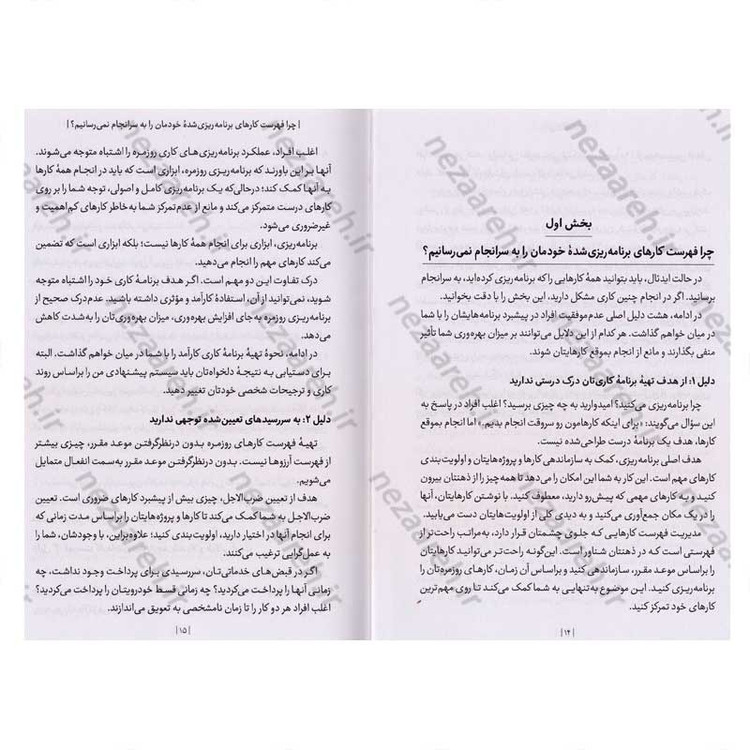 بخش اول
چرا فهرست کارهای برنامه‌ریزی‌شدهٔ خودمان را به سرانجام نمی‌رسانیم؟
در حالت ایدئال، باید بتوانید همهٔ کارهایی را که برنامه‌ریزی کرده‌اید، به سرانجام
برسانید. اگر در انجام چنین کاری مشکل دارید، این بخش را با دقت بخوانید.
در ادامه، هشت دلیل اصلی عدم‌موفقیت افراد در پیشبرد برنامه‌هایشان را با شما
در میان خواهم گذاشت. هر کدام از این دلایل می‌توانند بر میزان بهره‌وری شما تأثیر
منفی بگذارند و مانع از انجام بموقع کارهایتان شوند.
دلیل ۱: از هدف تهیهٔ برنامهٔ کاری‌تان درک درستی ندارید
چرا برنامه‌ریزی می‌کنید؟ امیدوارید به چه چیزی برسید؟ اغلب افراد در پاسخ به
این سؤال می‌گویند: «برای اینکه کارهامون رو سروقت انجام بدیم.» اما انجام بموقع
کارها، هدف یک برنامهٔ درست طراحی‌شده نیست.
هدف اصلی برنامه‌ریزی، کمک به سازماندهی کارها و پروژه‌هایتان و اولویت‌بندی
کارهای مهم است. این کار به شما این امکان را می‌دهد تا همه‌چیز را از ذهنتان بیرون
کنید و به کارهای مهمی که پیش‌رو دارید، معطوف کنید. با نوشتن کارهایتان، آنها
را در یک مکان جمع‌آوری می‌کنید و به دیدی کلی از اولویت‌هایتان دست می‌یابید.
مدیریت فهرست کارهایی که جلوی چشمتان قرار دارد، به‌مراتب راحت‌تر از
فهرستی است که در ذهنتان شناور است. این‌گونه راحت‌تر می‌توانید کارهایتان
را براساس موعد مقرر، سازماندهی کنید و براساس آن زمان، کارهای روزمره‌تان را
برنامه‌ریزی کنید. این موضوع به‌تنهایی به شما کمک می‌کند تا روی مهم‌ترین
کارهای خود تمرکز کنید.
|۱۴|
| چرا فهرست کارهای برنامه‌ریزی‌شدهٔ خودمان را به سرانجام نمی‌رسانیم؟ |
اغلب افراد، عملکرد برنامه‌ریزی‌های کاری روزمره را اشتباه متوجه می‌شوند.
آنها بر این باورند که برنامه‌ریزی روزمره، ابزاری است که باید در انجام همهٔ کارها
به آنها کمک کند؛ درحالی‌که یک برنامه‌ریزی کامل و اصولی، توجه شما را بر روی
کارهای درست متمرکز می‌کند و مانع از عدم‌تمرکز شما به خاطر کارهای کم‌اهمیت و
غیرضروری می‌شود.
برنامه‌ریزی، ابزاری برای انجام همهٔ کارها نیست؛ بلکه ابزاری است که تضمین
می‌کند کارهای مهم را انجام می‌دهید.
درک تفاوت این دو مهم است. اگر هدف برنامهٔ کاری خود را اشتباه متوجه
شوید، نمی‌توانید از آن، استفادهٔ کارآمد و مؤثری داشته باشید. عدم‌درک صحیح از
برنامه‌ریزی روزمره به جای افزایش بهره‌وری، میزان بهره‌وری‌تان را به‌شدت کاهش
می‌دهد.
در ادامه، نحوهٔ تهیهٔ برنامهٔ کاری کارآمد را با شما در میان خواهم گذاشت. البته
برای دستیابی به نتیجهٔ دلخواه‌تان باید سیستم پیشنهادی من را براساس روند
کاری و ترجیحات شخصی خودتان تغییر دهید.
دلیل ۲: به سررسیدهای تعیین‌شده توجهی ندارید
تهیهٔ فهرست کارهای روزمره بدون درنظرگرفتن موعد مقرر، چیزی بیشتر
از فهرست آرزوها نیست. بدون درنظرگرفتن موعد مقرر به‌سمت انفعال متمایل
می‌شویم.
هدف از تعیین ضرب‌الاجل، چیزی بیش از پیشبرد کارهای ضروری است. تعیین
ضرب‌الاجل به شما کمک می‌کند تا کارها و پروژه‌هایتان را براساس مدت زمانی که
برای انجام آنها در اختیار دارید، اولویت‌بندی کنید؛ علاوه‌براین، با وجودشان، شما را
به عمل‌گرایی ترغیب می‌کنند.
اگر در قبض‌های خدماتی‌تان، سررسیدی برای پرداخت وجود نداشت، چه
زمانی آنها را پرداخت می‌کردید؟ چه زمانی قسط خودرویتان را پرداخت می‌کردید؟
اغلب افراد هر دو کار را تا زمان نامشخصی به تعویق می‌اندازند.
|۱۵|
nezaareh.ir